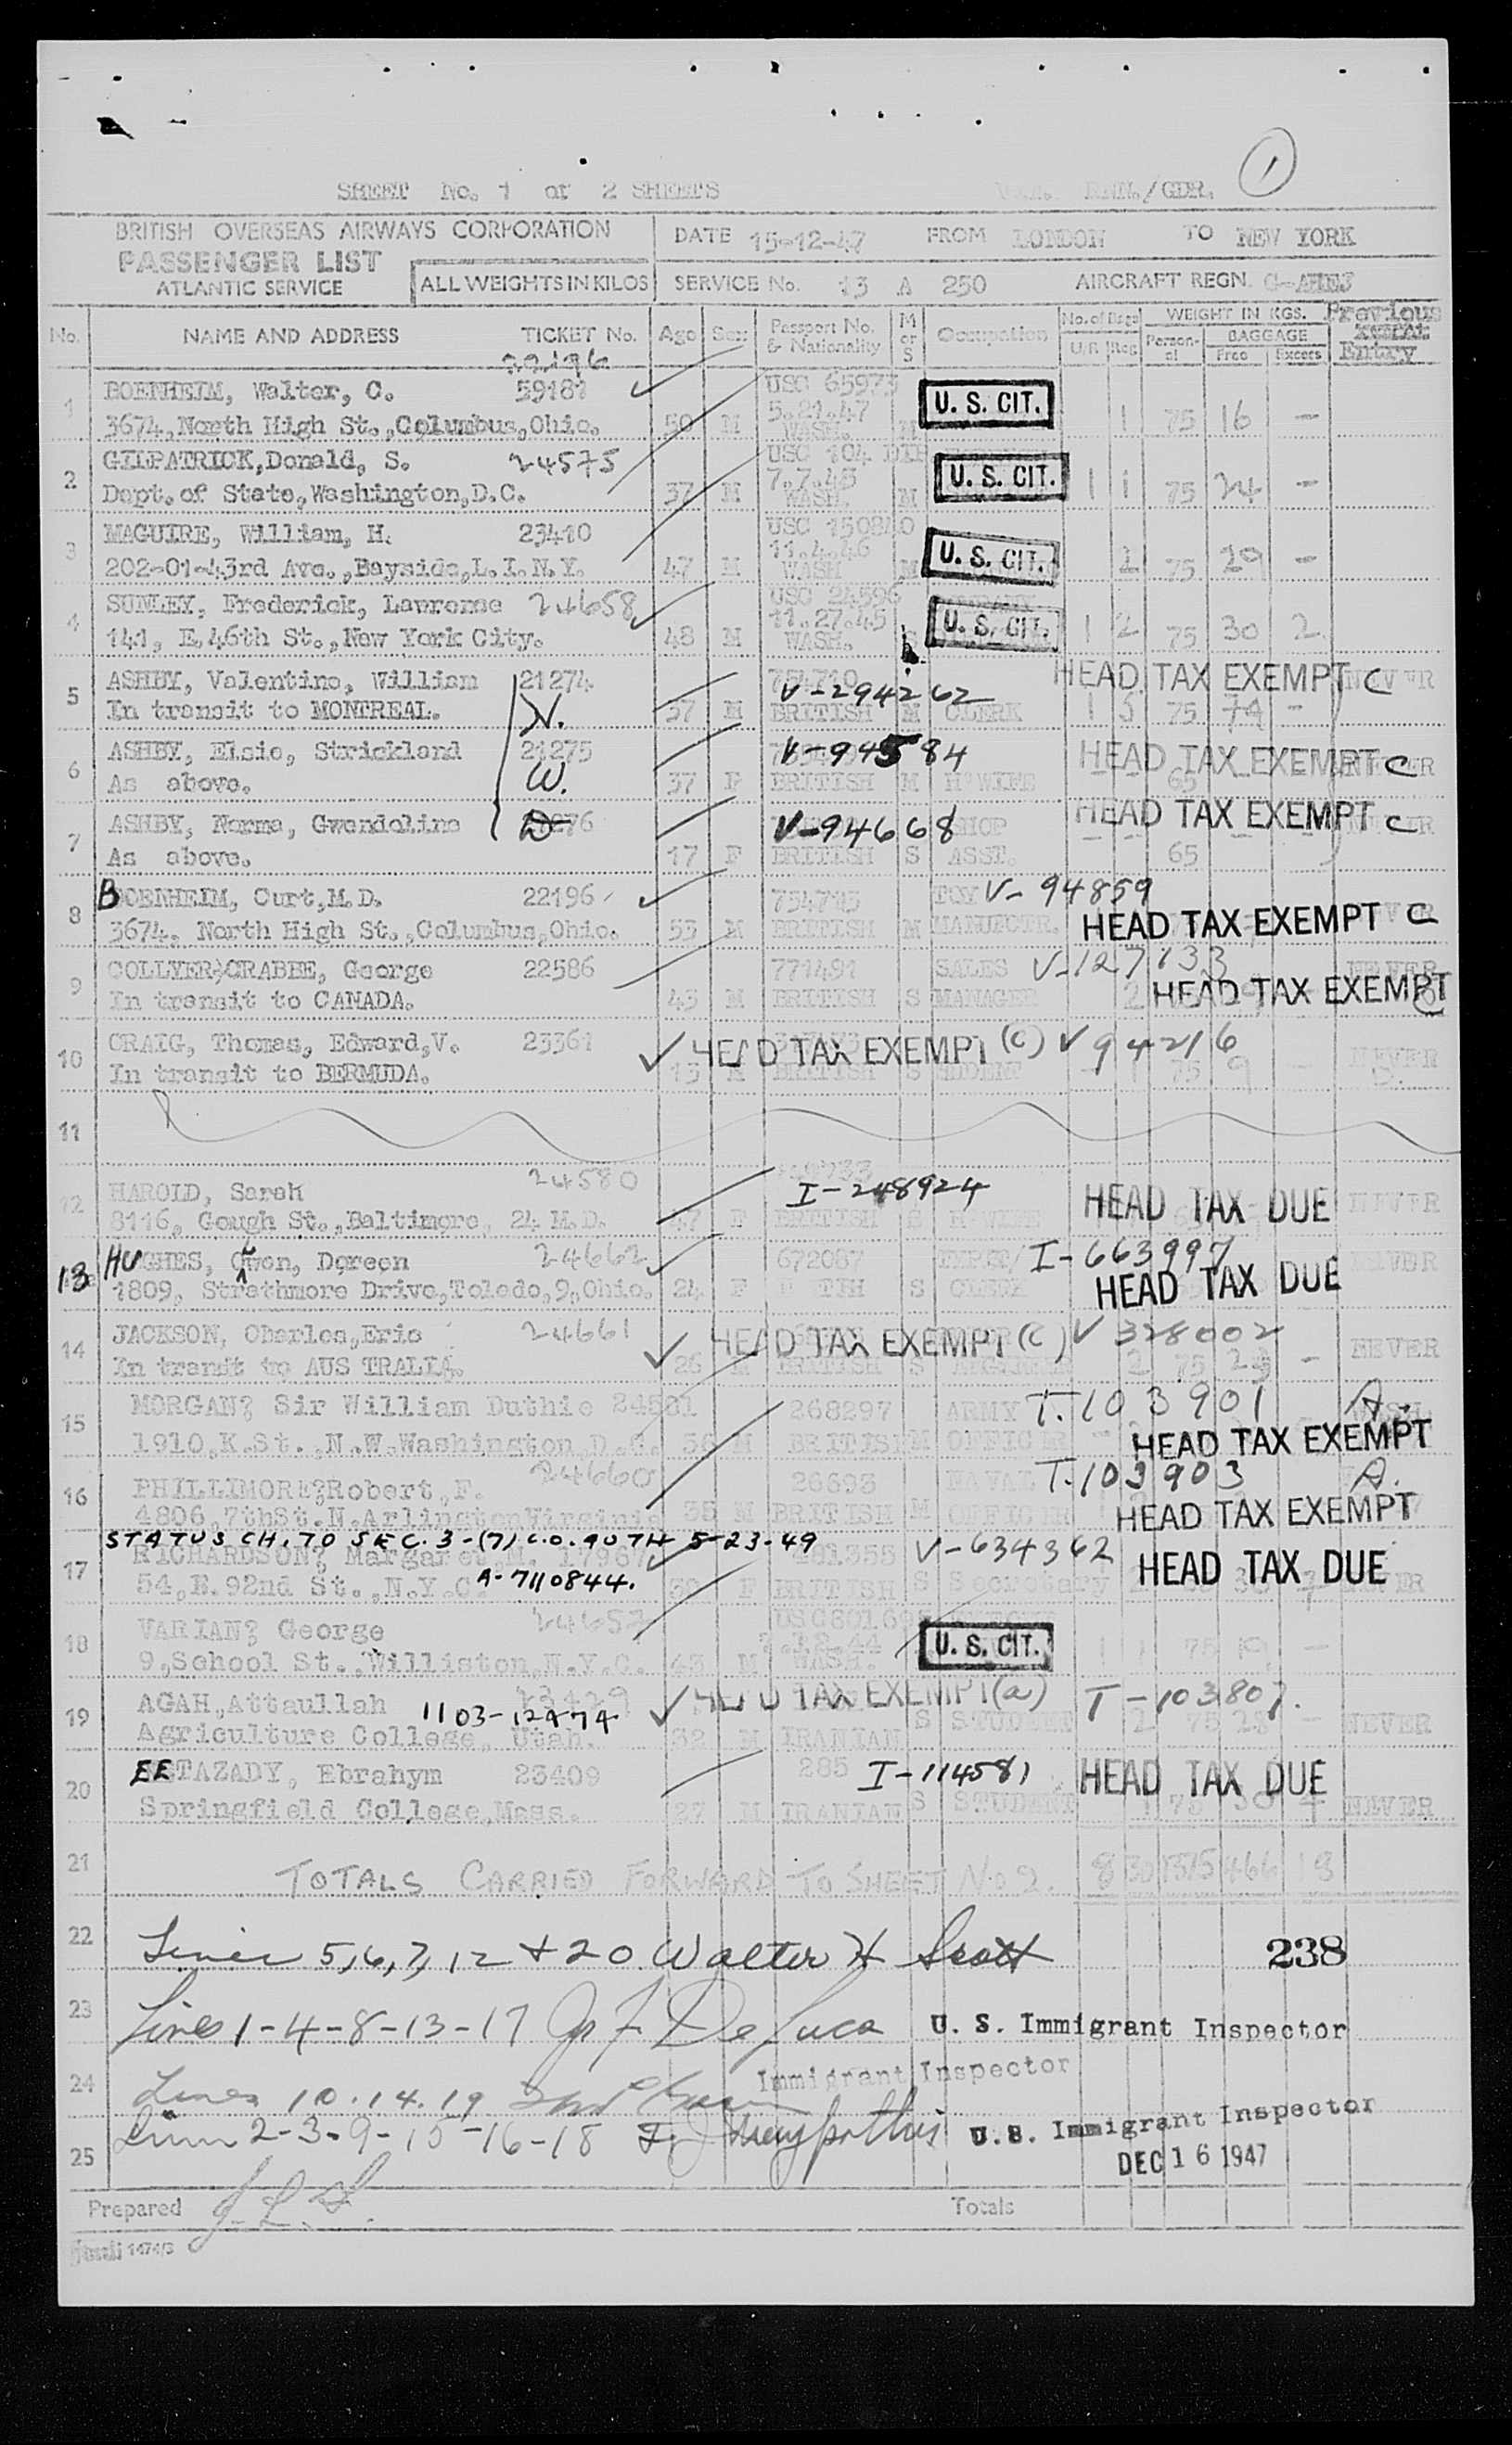 1
SHEET No. 1 of 2 SHEETS
BRITISH OVERSEAS AIRWAYS CORPORATION
PASSENGER LIST
ATLANTIC SERVICE
ALL WEIGHTS IN KILOS
DATE 15-12-47 FROM LONDON TO NEW YORK
SERVICE No. 13 A 250 AIRCRAFT REGN.
No. NAME AND ADDRESS TICKET No. Age Sex Passport No. & Nationality M or S Occupation No. of Bags U/R Reg WEIGHT IN KGS. Personal BAGGAGE Free Excess Previous Entry
22196
1 BOENHEIM, Walter, C. 59181 USC 65973 U. S. CIT.
3674, North High St., Columbus, Ohio. 50 M 5.21.47 WASH. M 1 75 16 -
2 GILPATRICK, Donald, S. 24575 USC 104 DIP U. S. CIT.
Dept. of State, Washington, D.C. 37 M 7.7.43 WASH. M 1 1 75 24 -
3 MAGUIRE, William, H. 23410 USC 150840 U. S. CIT.
202-01-43rd Ave., Bayside, L.I.N.Y. 47 M 11.4.46 WASH M 2 75 29 -
4 SUNLEY, Frederick, Lawrence 24658 USC 24596 U. S. CIT.
141, E. 46th St., New York City. 48 M 11.27.45 WASH. 1 2 75 30 2
5 ASHBY, Valentine, William 21274 V-294262 HEAD TAX EXEMPT C NEVER
In transit to MONTREAL. 37 M BRITISH M CLERK 1 3 75 74 -
6 ASHBY, Elsie, Strickland 21275 V-94584 HEAD TAX EXEMPT C
As above. W. 37 F BRITISH M H'WIFE 65
7 ASHBY, Norma, Gwendoline V-94668 SHOP HEAD TAX EXEMPT C
As above. 17 F BRITISH S ASST. 65
8 BOENHEIM, Curt, M.D. 22196 754795 TOY V-94859
3674, North High St., Columbus, Ohio. 53 M BRITISH M MANUFCTR. HEAD TAX EXEMPT C
9 COLLYER/CRABBE, George 22586 771491 SALES V-127133 NEVER
In transit to CANADA. 43 M BRITISH S MANAGER 2 HEAD TAX EXEMPT C
10 CRAIG, Thomas, Edward, V. 23361 HEAD TAX EXEMPT (C) V 94216 NEVER
In transit to BERMUDA. 13 M BRITISH S STUDENT 75 9 -
11
12 HAROLD, Sarah 24580 I-248924 HEAD TAX DUE NEVER
8116, Gough St., Baltimore, 24 M.D. 47 F BRITISH S
13 HUGHES, Gwen, Doreen 24662 672087 I-663997 NEVER
1809, Strathmore Drive, Toledo, 9, Ohio. 24 F S CLERK HEAD TAX DUE
14 JACKSON, Charles, Eric 24661 HEAD TAX EXEMPT (C) V 328002 NEVER
In transit to AUS TRALIA. 26 M BRITISH S 2 75 -
15 MORGAN? Sir William Duthie 24581 268297 ARMY T-103901 A.
1910, K. St., N.W. Washington, D.C. M BRITISH M OFFICER HEAD TAX EXEMPT
16 PHILLIMORE? Robert, F. 24660 26693 NAVAL T-103903 A.
4806, 7th St. N. Arlington Virginia 35 M BRITISH M OFFICER HEAD TAX EXEMPT
STATUS CH. TO SEC. 3-(7) C.O. AUTH 5-23-49
17 RICHARDSON? Margaret, M. 17967 481355 V-634362
54, E. 92nd St., N.Y.C. A-7110844. 30 F BRITISH S Secretary HEAD TAX DUE
18 VARIAN? George 24657 U. S. CIT.
9, School St., Williston, N.Y.C. 43 M WASH. 1 1 75 19 -
19 AGAH, Attaullah 1103-12474 HEAD TAX EXEMPT (a) T-103801.
Agriculture College, Utah. 32 M IRANIAN S STUDENT 2 75 - NEVER
20 EETAZADY, Ebrahym 23409 285 I-114581 HEAD TAX DUE
Springfield College, Mass. 27 M IRANIAN S STUDENT 1 75 30 4 NEVER
21 TOTALS CARRIED FORWARD TO SHEET No 2. 8 30 1375 466 13
22 Lines 5, 6, 7, 12 + 20 Walter H Scott 238
23 Lines 1-4-8-13-17 De Luca U. S. Immigrant Inspector
24 Lines 10.14.19 Immigrant Inspector
Lines 2-3-9-15-16-18 U. S. Immigrant Inspector
25 DEC 16 1947
Prepared Totals